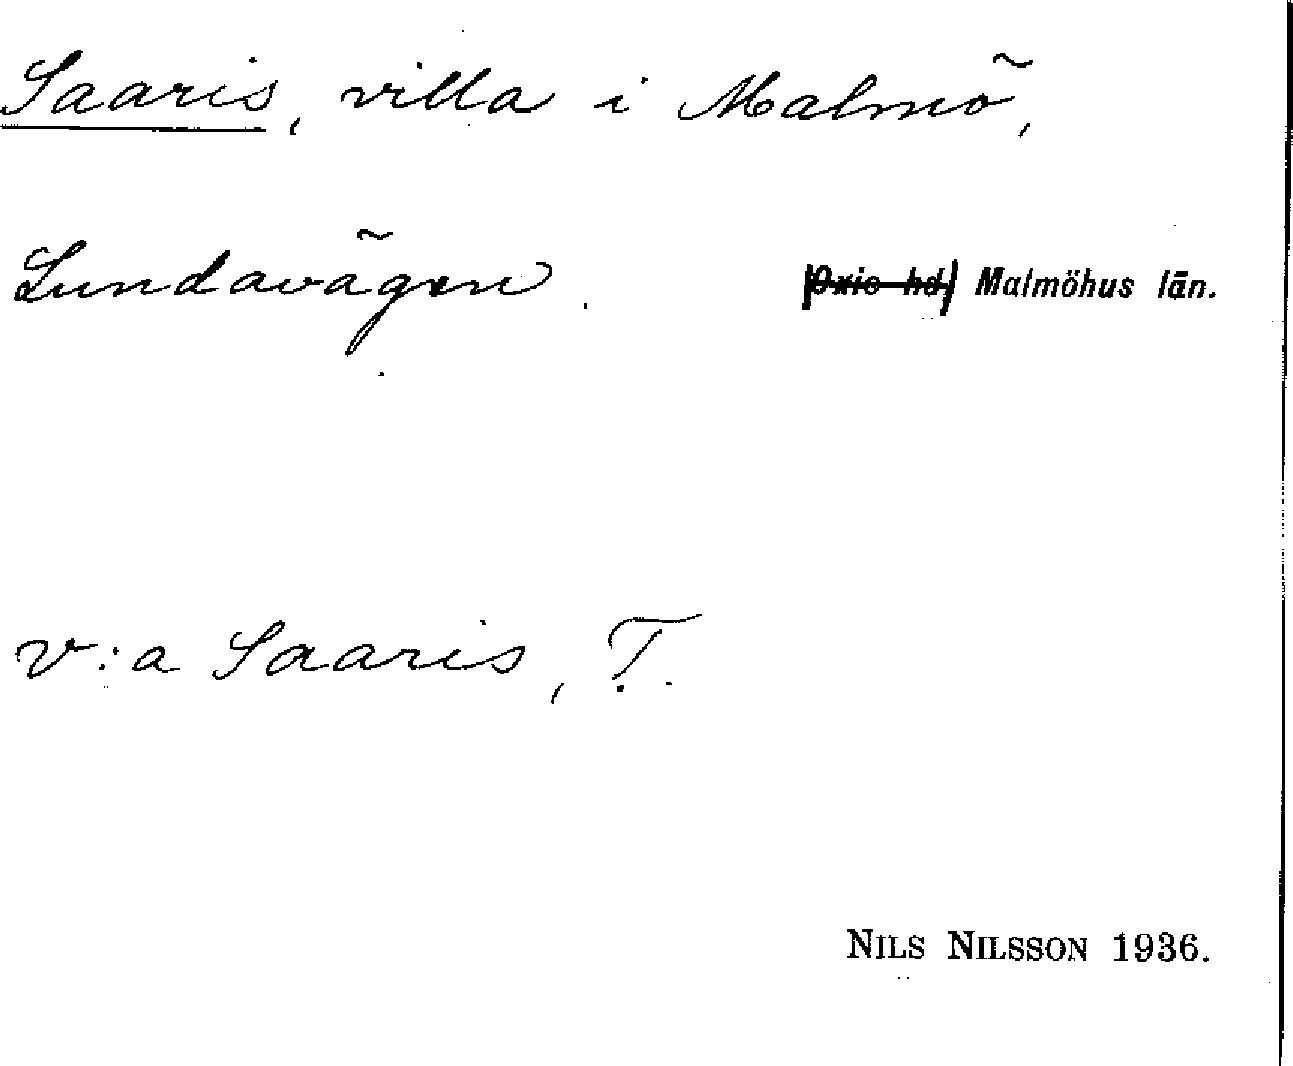 Saaris, villa i Malmö,
Lundavägen. Oxie hd, Malmöhus län.
v:a Saaris, T.
NILS NILSSON 1936.